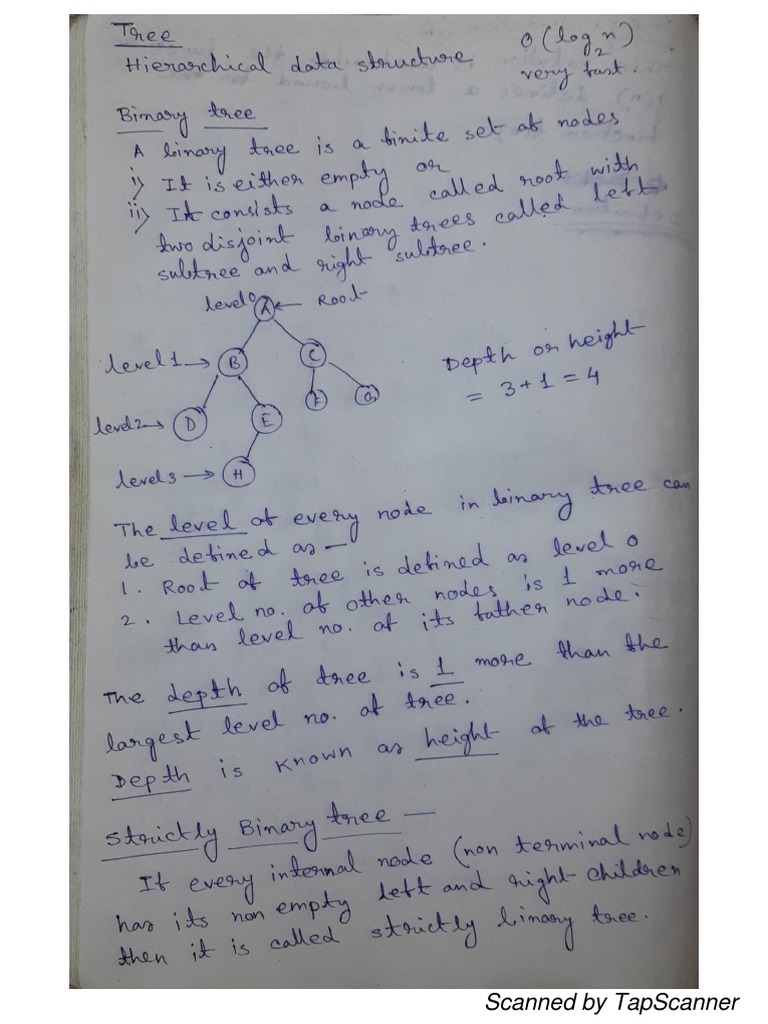 Tree
O(log₂n)
Hierarchical data structure
very fast.
Binary tree
A binary tree is a finite set of nodes
i) It is either empty or
ii) It consists a node called root with
two disjoint binary trees called left
subtree and right subtree.
level 0 A ← Root
level 1 → B C
Depth or height
= 3 + 1 = 4
level 2 → D E F G
level 3 → H
The level of every node in binary tree can
be defined as —
1. Root of tree is defined as level 0
2. Level no. of other nodes is 1 more
than level no. of its father node.
The depth of tree is 1 more than the
largest level no. of tree.
Depth is known as height of the tree.
Strictly Binary tree —
If every internal node (non terminal node)
has its non empty left and right children
then it is called strictly binary tree.
Scanned by TapScanner